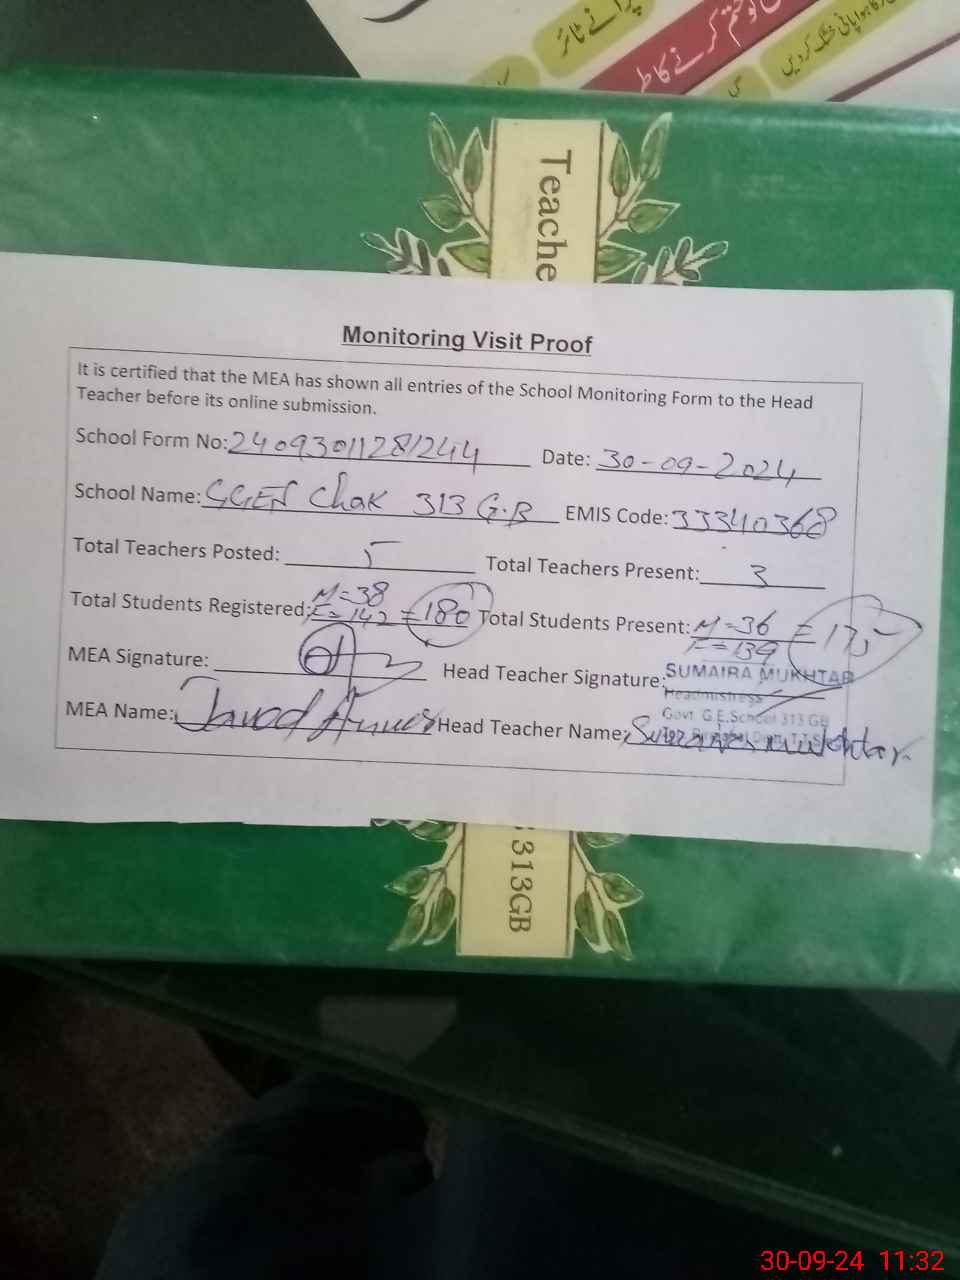 پرانے ٹائر
کو ختم کرنے کا طر
کا ہوا پانی خشک کر دیں
Teache
Monitoring Visit Proof
It is certified that the MEA has shown all entries of the School Monitoring Form to the Head
Teacher before its online submission.
School Form No: 24093011281244 Date: 30-09-2024
School Name: GGES Chak 313 G.B EMIS Code: 33340368
Total Teachers Posted: 5 Total Teachers Present: 3
Total Students Registered: M=38 F=142 =180 Total Students Present: M=36 F=139 =175
MEA Signature: Head Teacher Signature:
SUMAIRA MUKHTAR
Headmistress
Govt. G.E.School 313 GB
MEA Name: Javed Head Teacher Name: Sumaira mukhtar
313GB
30-09-24 11:32